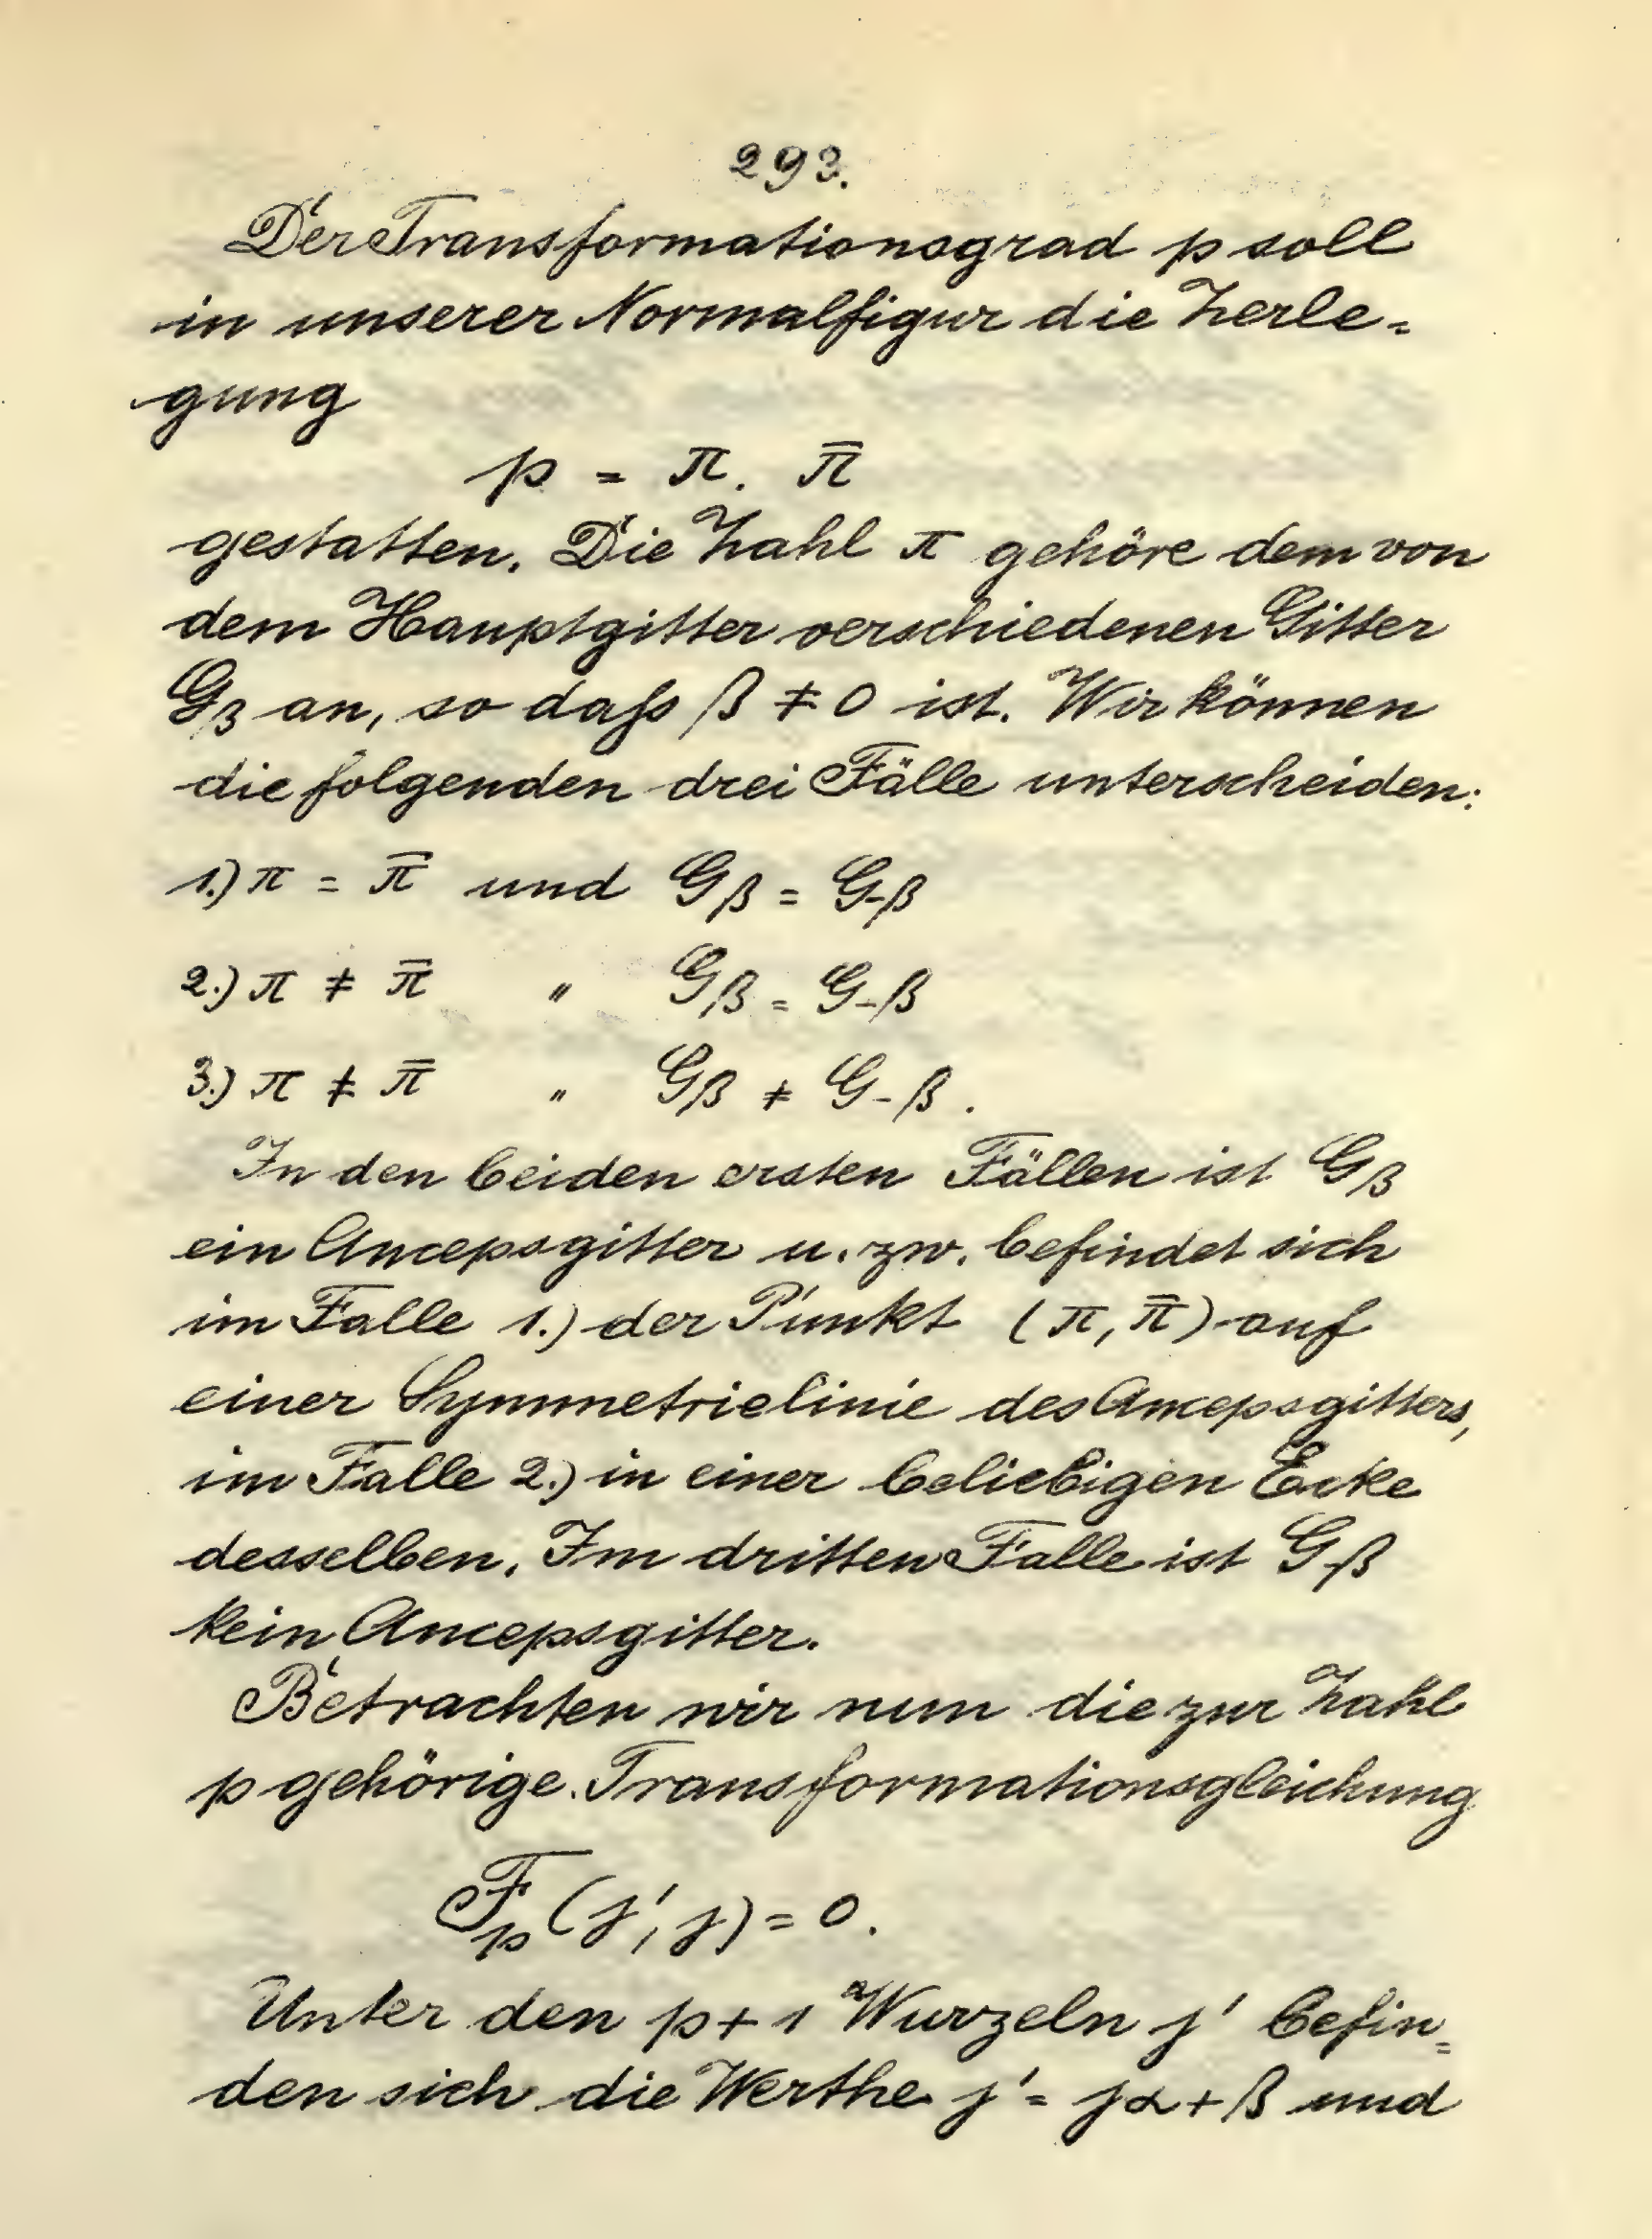 293.
Der Transformationsgrad p soll
in unserer Normalfigur die Zerle-
gung
p = π. π̄
gestatten. Die Zahl π gehöre dem von
dem Hauptgitter verschiedenen Gitter
Gβ an, so daſs β ≠ 0 ist. Wir können
die folgenden drei Fälle unterscheiden:
1.) π = π̄ und Gβ = G-β
2.) π ≠ π̄ " Gβ = G-β
3.) π ≠ π̄ " Gβ ≠ G-β.
In den beiden ersten Fällen ist Gβ
ein Ancepsgitter u. zw. befindet sich
im Falle 1.) der Punkt (π, π̄) auf
einer Symmetrielinie des Ancepsgitters,
im Falle 2.) in einer beliebigen Ecke
desselben. Im dritten Falle ist Gβ
kein Ancepsgitter.
Betrachten wir nun die zur Zahl
p gehörige Transformationsgleichung
Fp (j', j) = 0.
Unter den p+1 Wurzeln j' befin=
den sich die Werthe j' = jα+β und